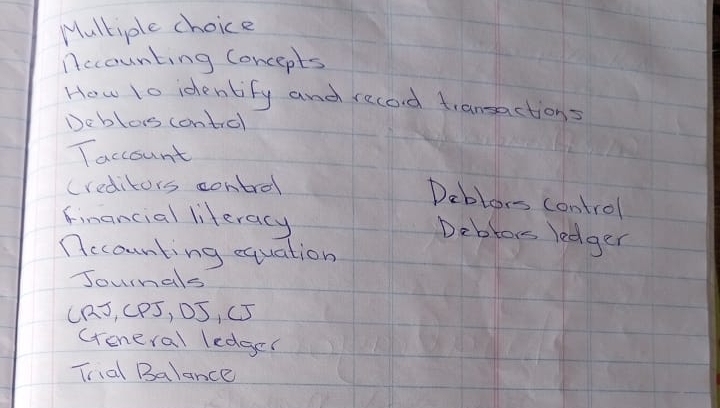 Multiple choice
Accounting Concepts
How to identify and record transactions
Debtors control
T account
Creditors control
Financial literacy
Accounting equation
Journals
CRJ, CPJ, DJ, CJ
General ledger
Trial Balance
Debtors control
Debtors ledger